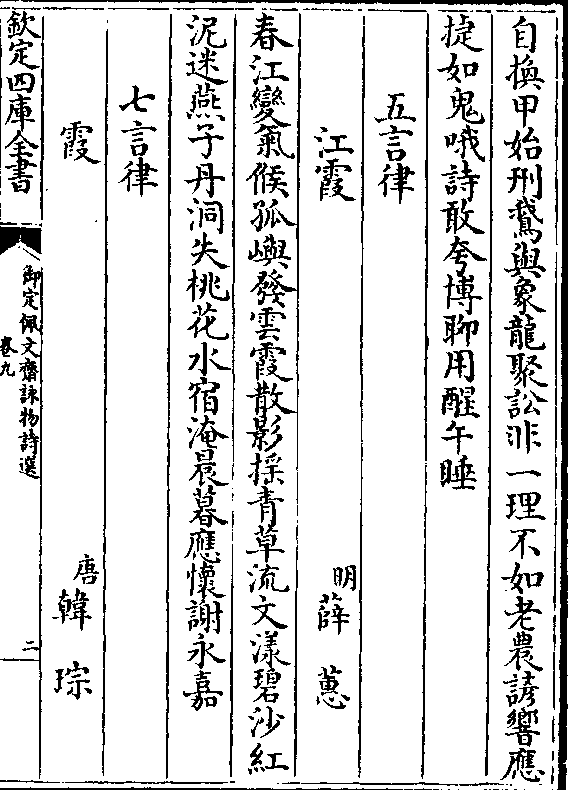 自換甲始刑鵞與象龍聚訟非一理不如老農諺響應
捷如鬼哦詩敢夸博聊用醒午睡
五言律
江霞
明薛蕙
春江變氣候孤嶼發雲霞散影採青草流文漾碧沙紅
泥迷燕子丹洞失桃花水宿淹晨暮應懷謝永嘉
七言律
霞
唐韓琮
欽定四庫全書
御定佩文齋詠物詩選
卷九
二